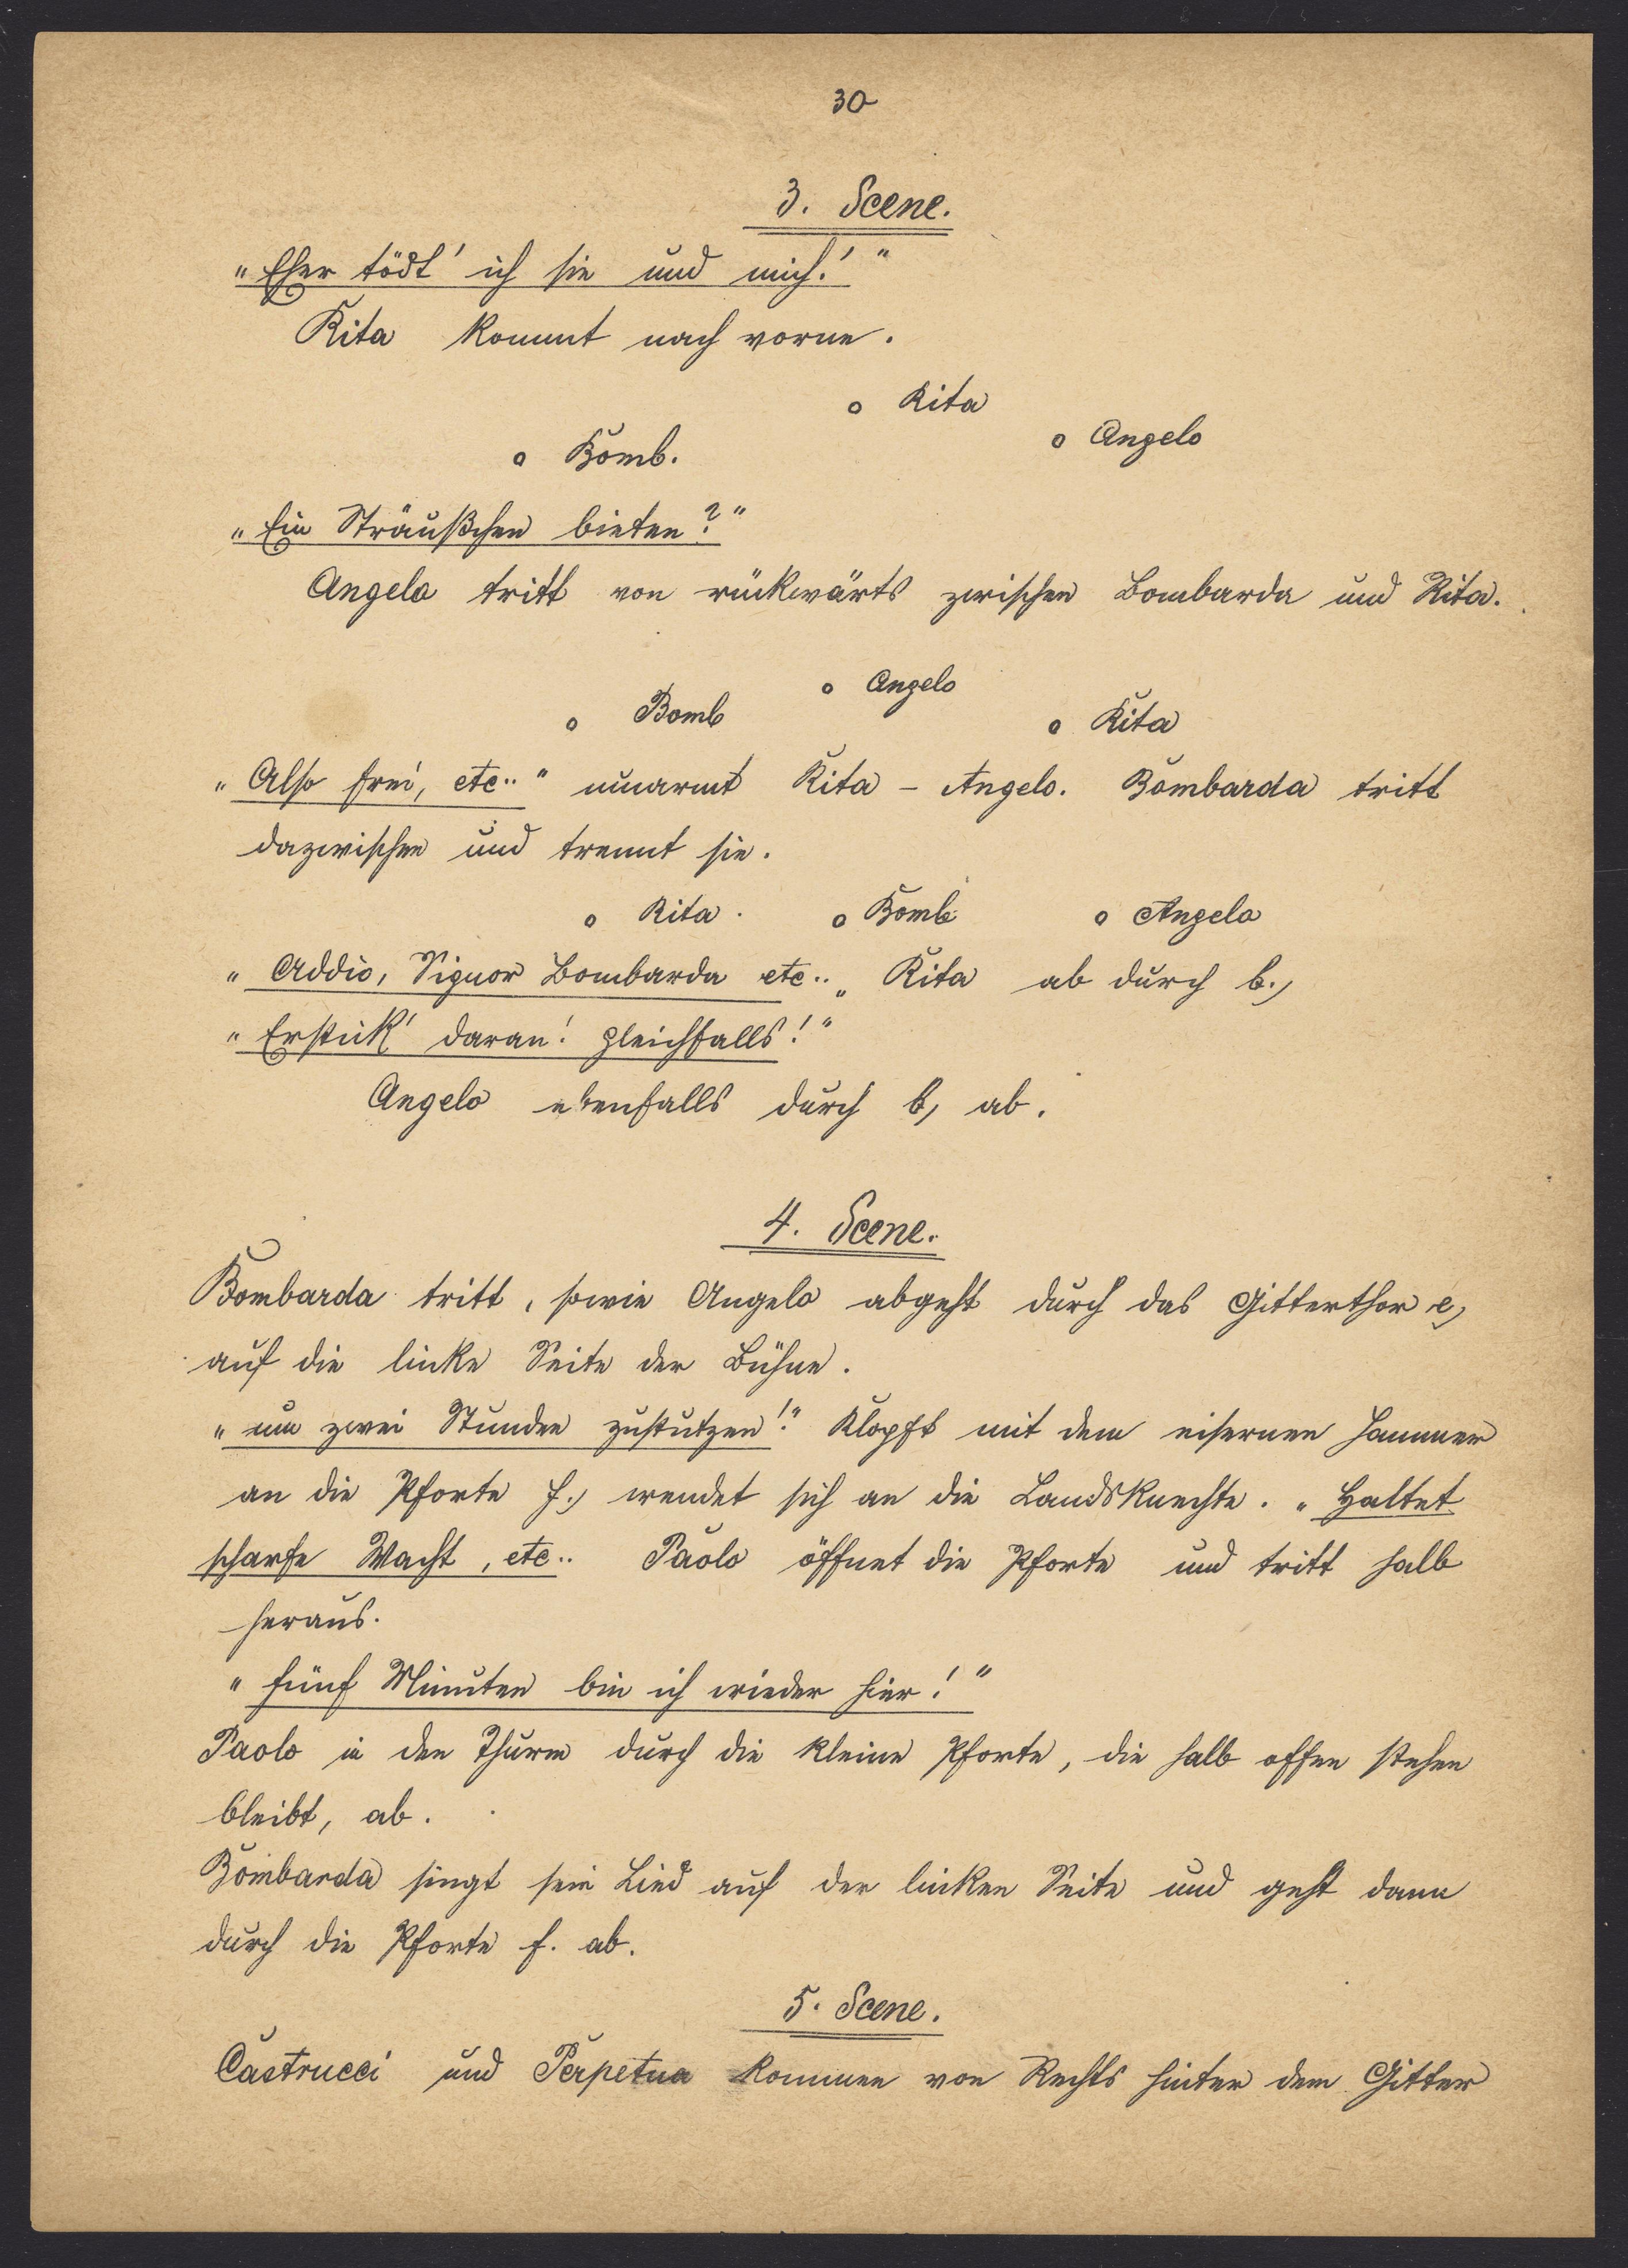 30
3. Scene.
"Eher tödt' ich sie und mich!"
Rita kommt nach vorne.
o Rita
o Angelo
o Bomb.
"Ein Sträußchen bieten?"
Angelo tritt von rückwärts zwischen Bombarda und Rita.
o Angelo
o Bomb
o Rita
"Also frei, etc.." umarmt Rita - Angelo. Bombarda tritt
dazwischen und trennt sie.
o Rita. o Bomb o Angelo
"Addio, Signor Bombarda etc.." Rita ab durch b.)
"Erstick' daran! gleichfalls!"
Angelo ebenfalls durch b) ab.
4. Scene.
Bombarda tritt, sowie Angelo abgeht durch das Gitterthor e)
auf die linke Seite der Bühne.
"um zwei Stunden zustutzen!" Klopft mit dem eisernen Hammer
an die Pforte f.) wendet sich an die Landsknechte. "Haltet
scharfe Wacht, etc.. Paolo öffnet die Pforte und tritt halb
heraus.
"fünf Minuten bin ich wieder hier!"
Paolo in den Thurm durch die kleine Pforte, die halb offen stehen
bleibt, ab.
Bombarda singt sein Lied auf der linken Seite und geht dann
durch die Pforte f. ab.
5. Scene.
Castrucci und Perpetua kommen von Rechts hinter dem Gitter